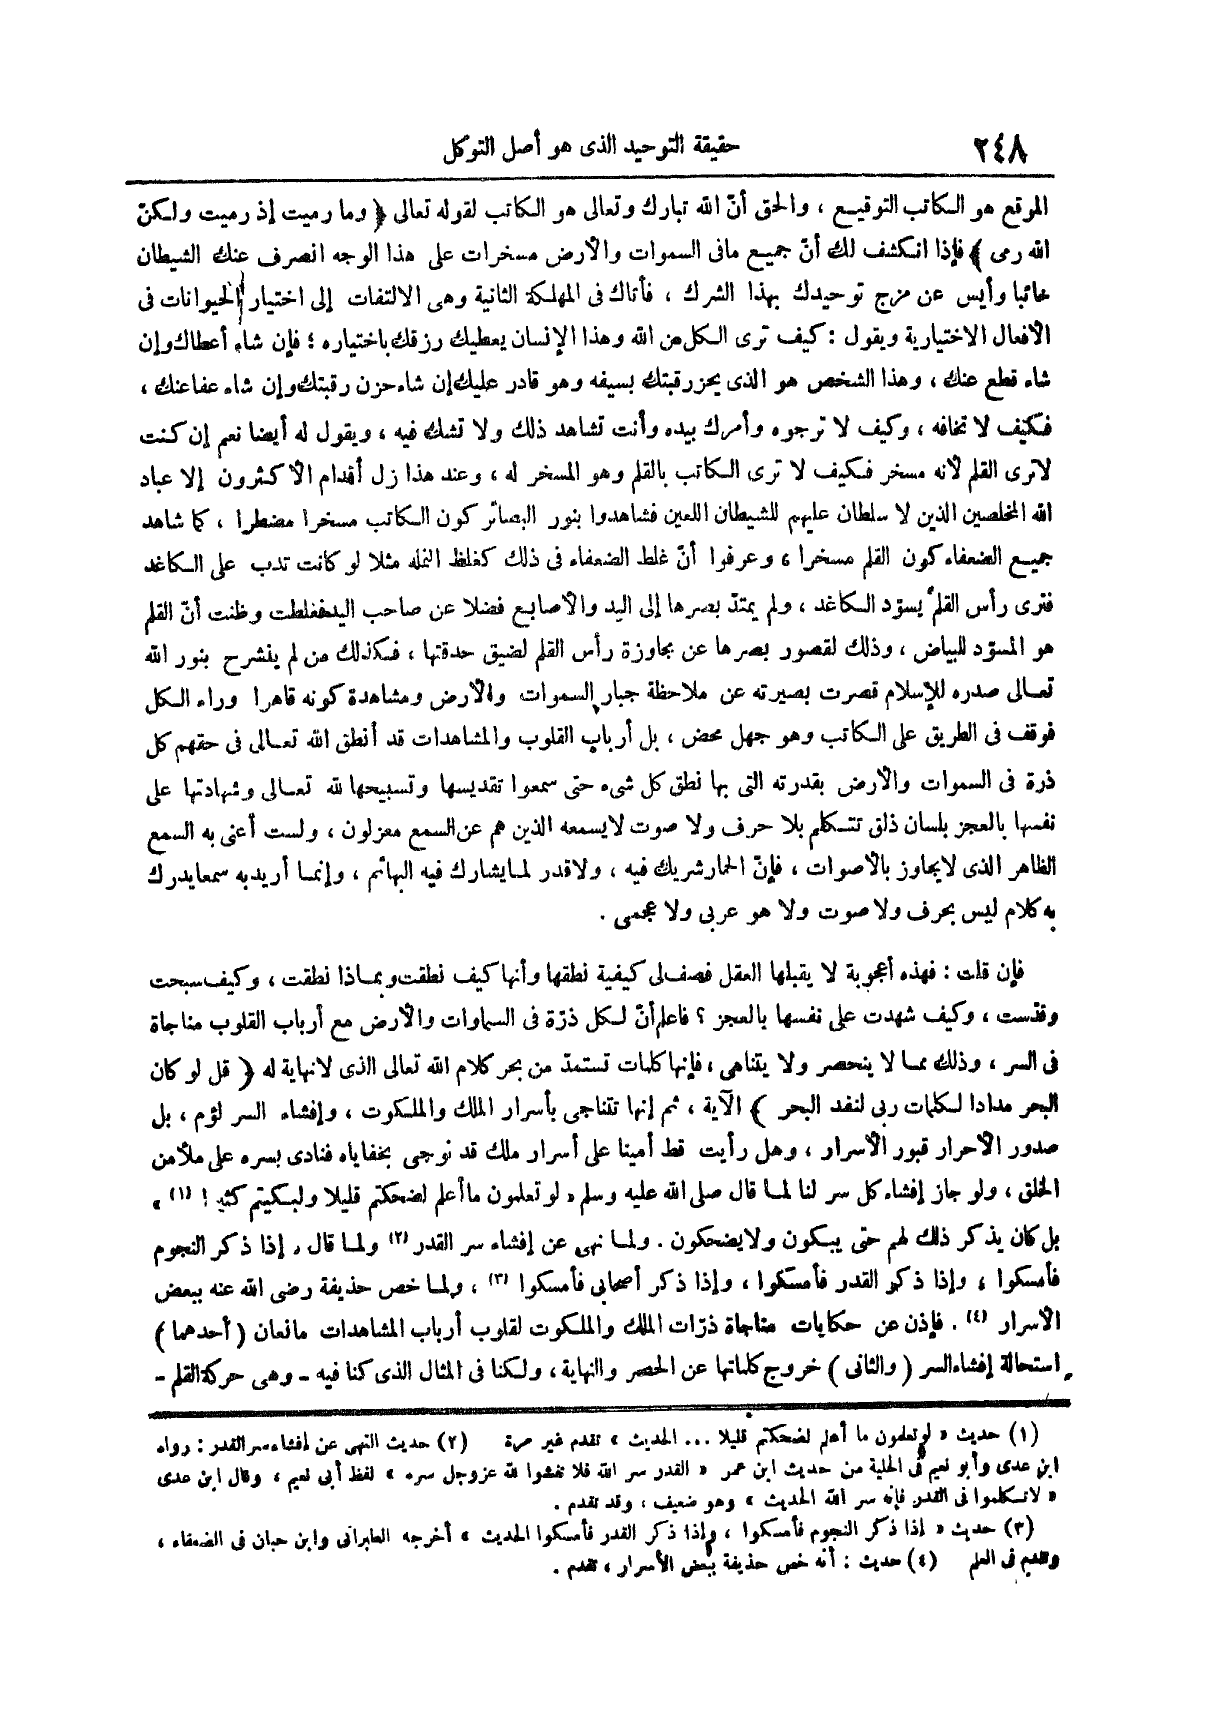 ٢٤٨
حقيقة التوحيد الذى هو أصل التوكل
الموقع هو الكاتب التوقيع ، والحق أنّ الله تبارك وتعالى هو الكاتب لقوله تعالى ﴿ وما رميت إذ رميت ولكنّ
الله رمى ﴾ فإذا انكشف لك أنّ جميع مافى السموات والأرض مسخرات على هذا الوجه انصرف عنك الشيطان
خائبا وأيس عن مزج توحيدك بهذا الشرك ، فأتاك فى المهلكة الثانية وهى الالتفات إلى اختيار الحيوانات فى
الأفعال الاختيارية ويقول : كيف ترى الكل من الله وهذا الإنسان يعطيك رزقك باختياره ؛ فإن شاء أعطاك وإن
شاء قطع عنك ، وهذا الشخص هو الذى يحز رقبتك بسيفه وهو قادر عليك إن شاء حزن رقبتك وإن شاء عفا عنك ،
فكيف لا تخافه ، وكيف لا ترجوه وأمرك بيده وأنت تشاهد ذلك ولا تشك فيه ، ويقول له أيضا نعم إن كنت
لا ترى القلم لأنه مسخر فكيف لا ترى الكاتب بالقلم وهو المسخر له ، وعند هذا زل أقدام الأكثرون إلا عباد
الله المخلصين الذين لا سلطان عليهم للشيطان اللعين فشاهدوا بنور البصائر كون الكاتب مسخرا مضطرا ، كما شاهد
جميع الضعفاء كون القلم مسخرا ، وعرفوا أنّ غلط الضعفاء فى ذلك كغلط النملة مثلا لو كانت تدب على الكاغد
فترى رأس القلم يسوّد الكاغد ، ولم يمتدّ بصرها إلى اليد والأصابع فضلا عن صاحب اليد فغلطت وظنت أنّ القلم
هو المسوّد للبياض ، وذلك لقصور بصرها عن مجاوزة رأس القلم لضيق حدقتها ، فكذلك من لم ينشرح بنور الله
تعالى صدره للإسلام قصرت بصيرته عن ملاحظة جبار السموات والأرض ومشاهدة كونه قاهرا وراء الكل
فوقف فى الطريق على الكاتب وهو جهل محض ، بل أرباب القلوب والمشاهدات قد أنطق الله تعالى فى حقهم كل
ذرة فى السموات والأرض بقدرته التى بها نطق كل شىء حتى سمعوا تقديسها وتسبيحها لله تعالى وشهادتها على
نفسها بالعجز بلسان ذلق تتكلم بلا حرف ولا صوت لا يسمعه الذين هم عن السمع معزلون ، ولست أعنى به السمع
الظاهر الذى لا يجاوز بالأصوات ، فإنّ الحمار شريك فيه ، ولا قدر لما يشارك فيه البهائم ، وإنما أريد به سمعا يدرك
به كلام ليس بحرف ولا صوت ولا هو عربى ولا عجمى .
فإن قلت : فهذه أعجوبة لا يقبلها العقل فصف لى كيفية نطقها وأنها كيف نطقت وبماذا نطقت ، وكيف سبحت
وقدّست ، وكيف شهدت على نفسها بالعجز ؟ فاعلم أنّ لكل ذرّة فى السماوات والأرض مع أرباب القلوب مناجاة
فى السر ، وذلك مما لا ينحصر ولا يتناهى ، فإنها كلمات تستمدّ من بحر كلام الله تعالى الذى لا نهاية له ﴿ قل لو كان
البحر مدادا لكلمات ربى لنفد البحر ﴾ الآية ، ثم إنها تتناجى بأسرار الملك والملكوت ، وإفشاء السر لؤم ، بل
صدور الأحرار قبور الأسرار ، وهل رأيت قط أمينا على أسرار ملك قد نوجى بخفاياه فنادى بسره على ملأ من
الخلق ، ولو جاز إفشاء كل سر لنا لما قال صلى الله عليه وسلم « لو تعلمون ما أعلم لضحكتم قليلا ولبكيتم كثيرا (١) »
بل كان يذكر ذلك لهم حتى يبكون ولا يضحكون . ولما نهى عن إفشاء سر القدر (٢) ولما قال « إذا ذكر النجوم
فأمسكوا ، وإذا ذكر القدر فأمسكوا ، وإذا ذكر أصحابى فأمسكوا (٣) » ، ولما خص حذيفة رضى الله عنه ببعض
الأسرار (٤) . فإذن عن حكايات مناجاة ذرّات الملك والملكوت لقلوب أرباب المشاهدات مانعان ( أحدهما )
استحالة إفشاء السر ( والثانى ) خروج كلماتها عن الحصر والنهاية ، ولكنا فى المثال الذى كنا فيه – وهى حركة القلم –
(١) حديث « لو تعلمون ما أعلم لضحكتم قليلا ... الحديث » تقدم غير مرة (٢) حديث النهى عن إفشاء سر القدر : رواه
ابن عدى وأبو نعيم فى الحلية من حديث ابن عمر « القدر سر الله فلا تفشوا لله عز وجل سره » لفظ أبى نعيم ، وقال ابن عدى
« لا تكلموا فى القدر فإنه سر الله الحديث » وهو ضعيف ، وقد تقدم .
(٣) حديث « إذا ذكر النجوم فأمسكوا ، وإذا ذكر القدر فأمسكوا الحديث » أخرجه الطبرانى وابن حبان فى الضعفاء ،
وتقدم فى العلم (٤) حديث : أنه خص حذيفة ببعض الأسرار ، تقدم .